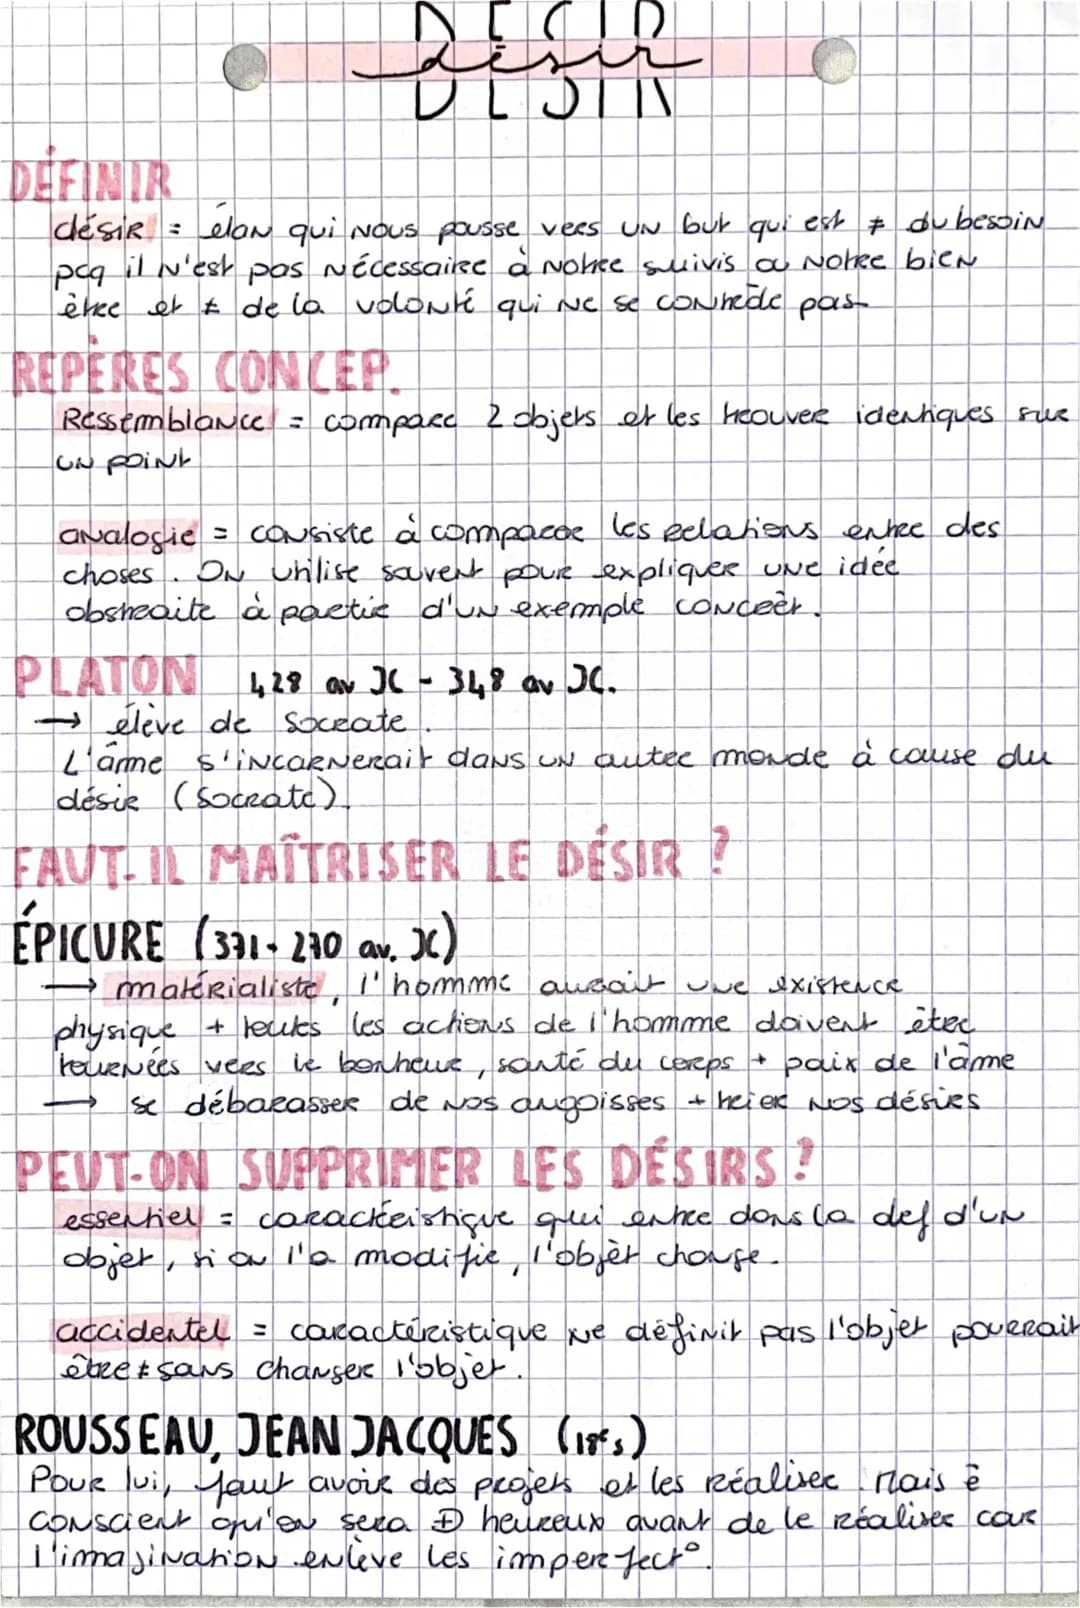 DESIR
désir
DESIR
DÉFINIR
désir = élan qui nous pousse vers un but qui est ≠ du besoin
pcq il n'est pas nécessaire à notre suivis ou notre bien
être et ≠ de la volonté qui ne se contrède pas
REPÈRES CONCEP.
Ressemblance = compare 2 objets et les trouver identiques sur
un point
analogie = consiste à comparer les relations entre des
choses. On utilise savent pour expliquer une idée
abstraite à partir d'un exemple concrèt.
PLATON 428 av JC - 348 av JC.
→ élève de Socrate.
L'âme s'incarnerait dans un autre monde à cause du
désir (Socrate).
FAUT-IL MAÎTRISER LE DÉSIR ?
ÉPICURE (371-270 av. JC)
→ matérialiste, l'homme aurait une existence
physique + toutes les actions de l'homme doivent être
tournées vers le bonheur, santé du corps + paix de l'âme
→ se débarasser de nos angoisses + trier nos désirs
PEUT-ON SUPPRIMER LES DÉSIRS ?
essentiel = caractéistique qui entre dans la def d'un
objet, si on l'a modifie, l'objèt change.
accidentel = caractéristique ne définit pas l'objet pourrait
être ≠ sans changer l'objet.
ROUSSEAU, JEAN JACQUES (18e s)
Pour lui, faut avoir des projets et les réaliser. Mais ê
conscient qu'on sera ⊕ heureux avant de le réaliser car
l'imagination enlève les imperfect°.